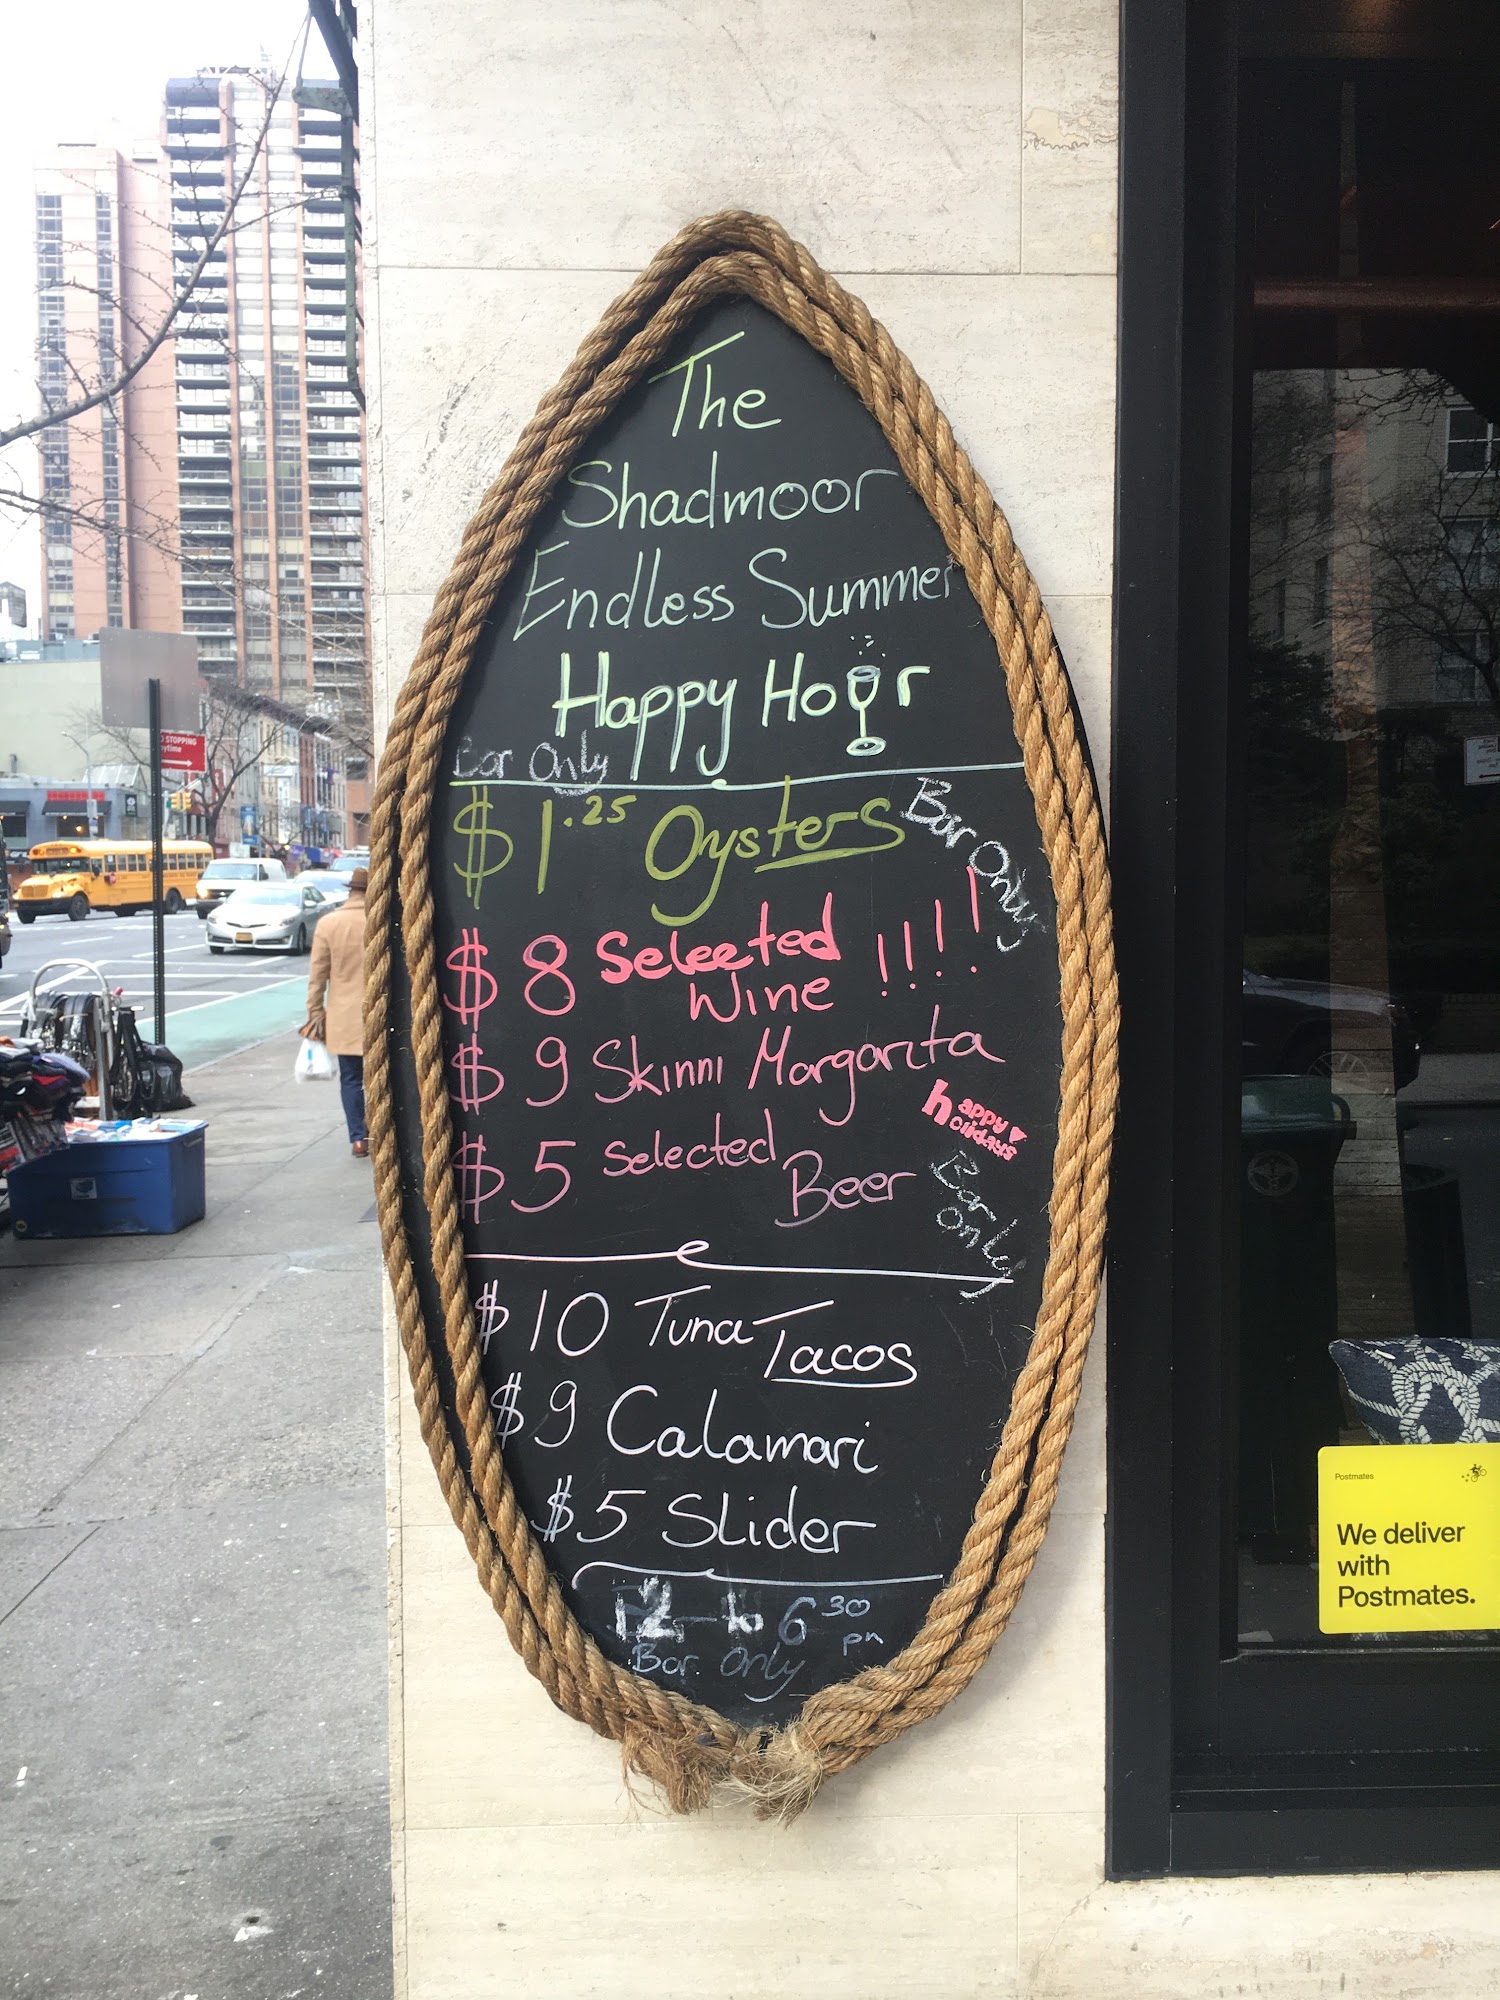 The
Shadmoor
Endless Summer
Happy Hour
Bar Only
$1.25 Oysters
Bar Only
$8 Selected
Wine !!!!
$9 Skinni Margarita
happy
holidays
$5 Selected
Beer
Bar
Only
$10 Tuna Tacos
$9 Calamari
$5 Slider
12 - to 6 30
pm
Bar. Only
STOPPING
Postmates
We deliver
with
Postmates.